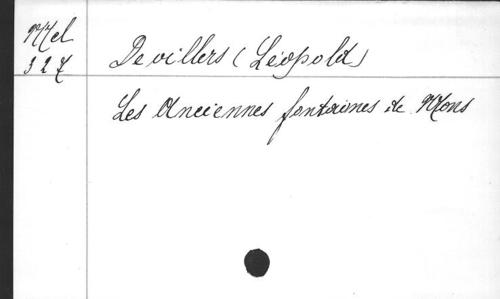 Mel
327
Devillers (Léopold)
Les Anciennes fontaines de Mons